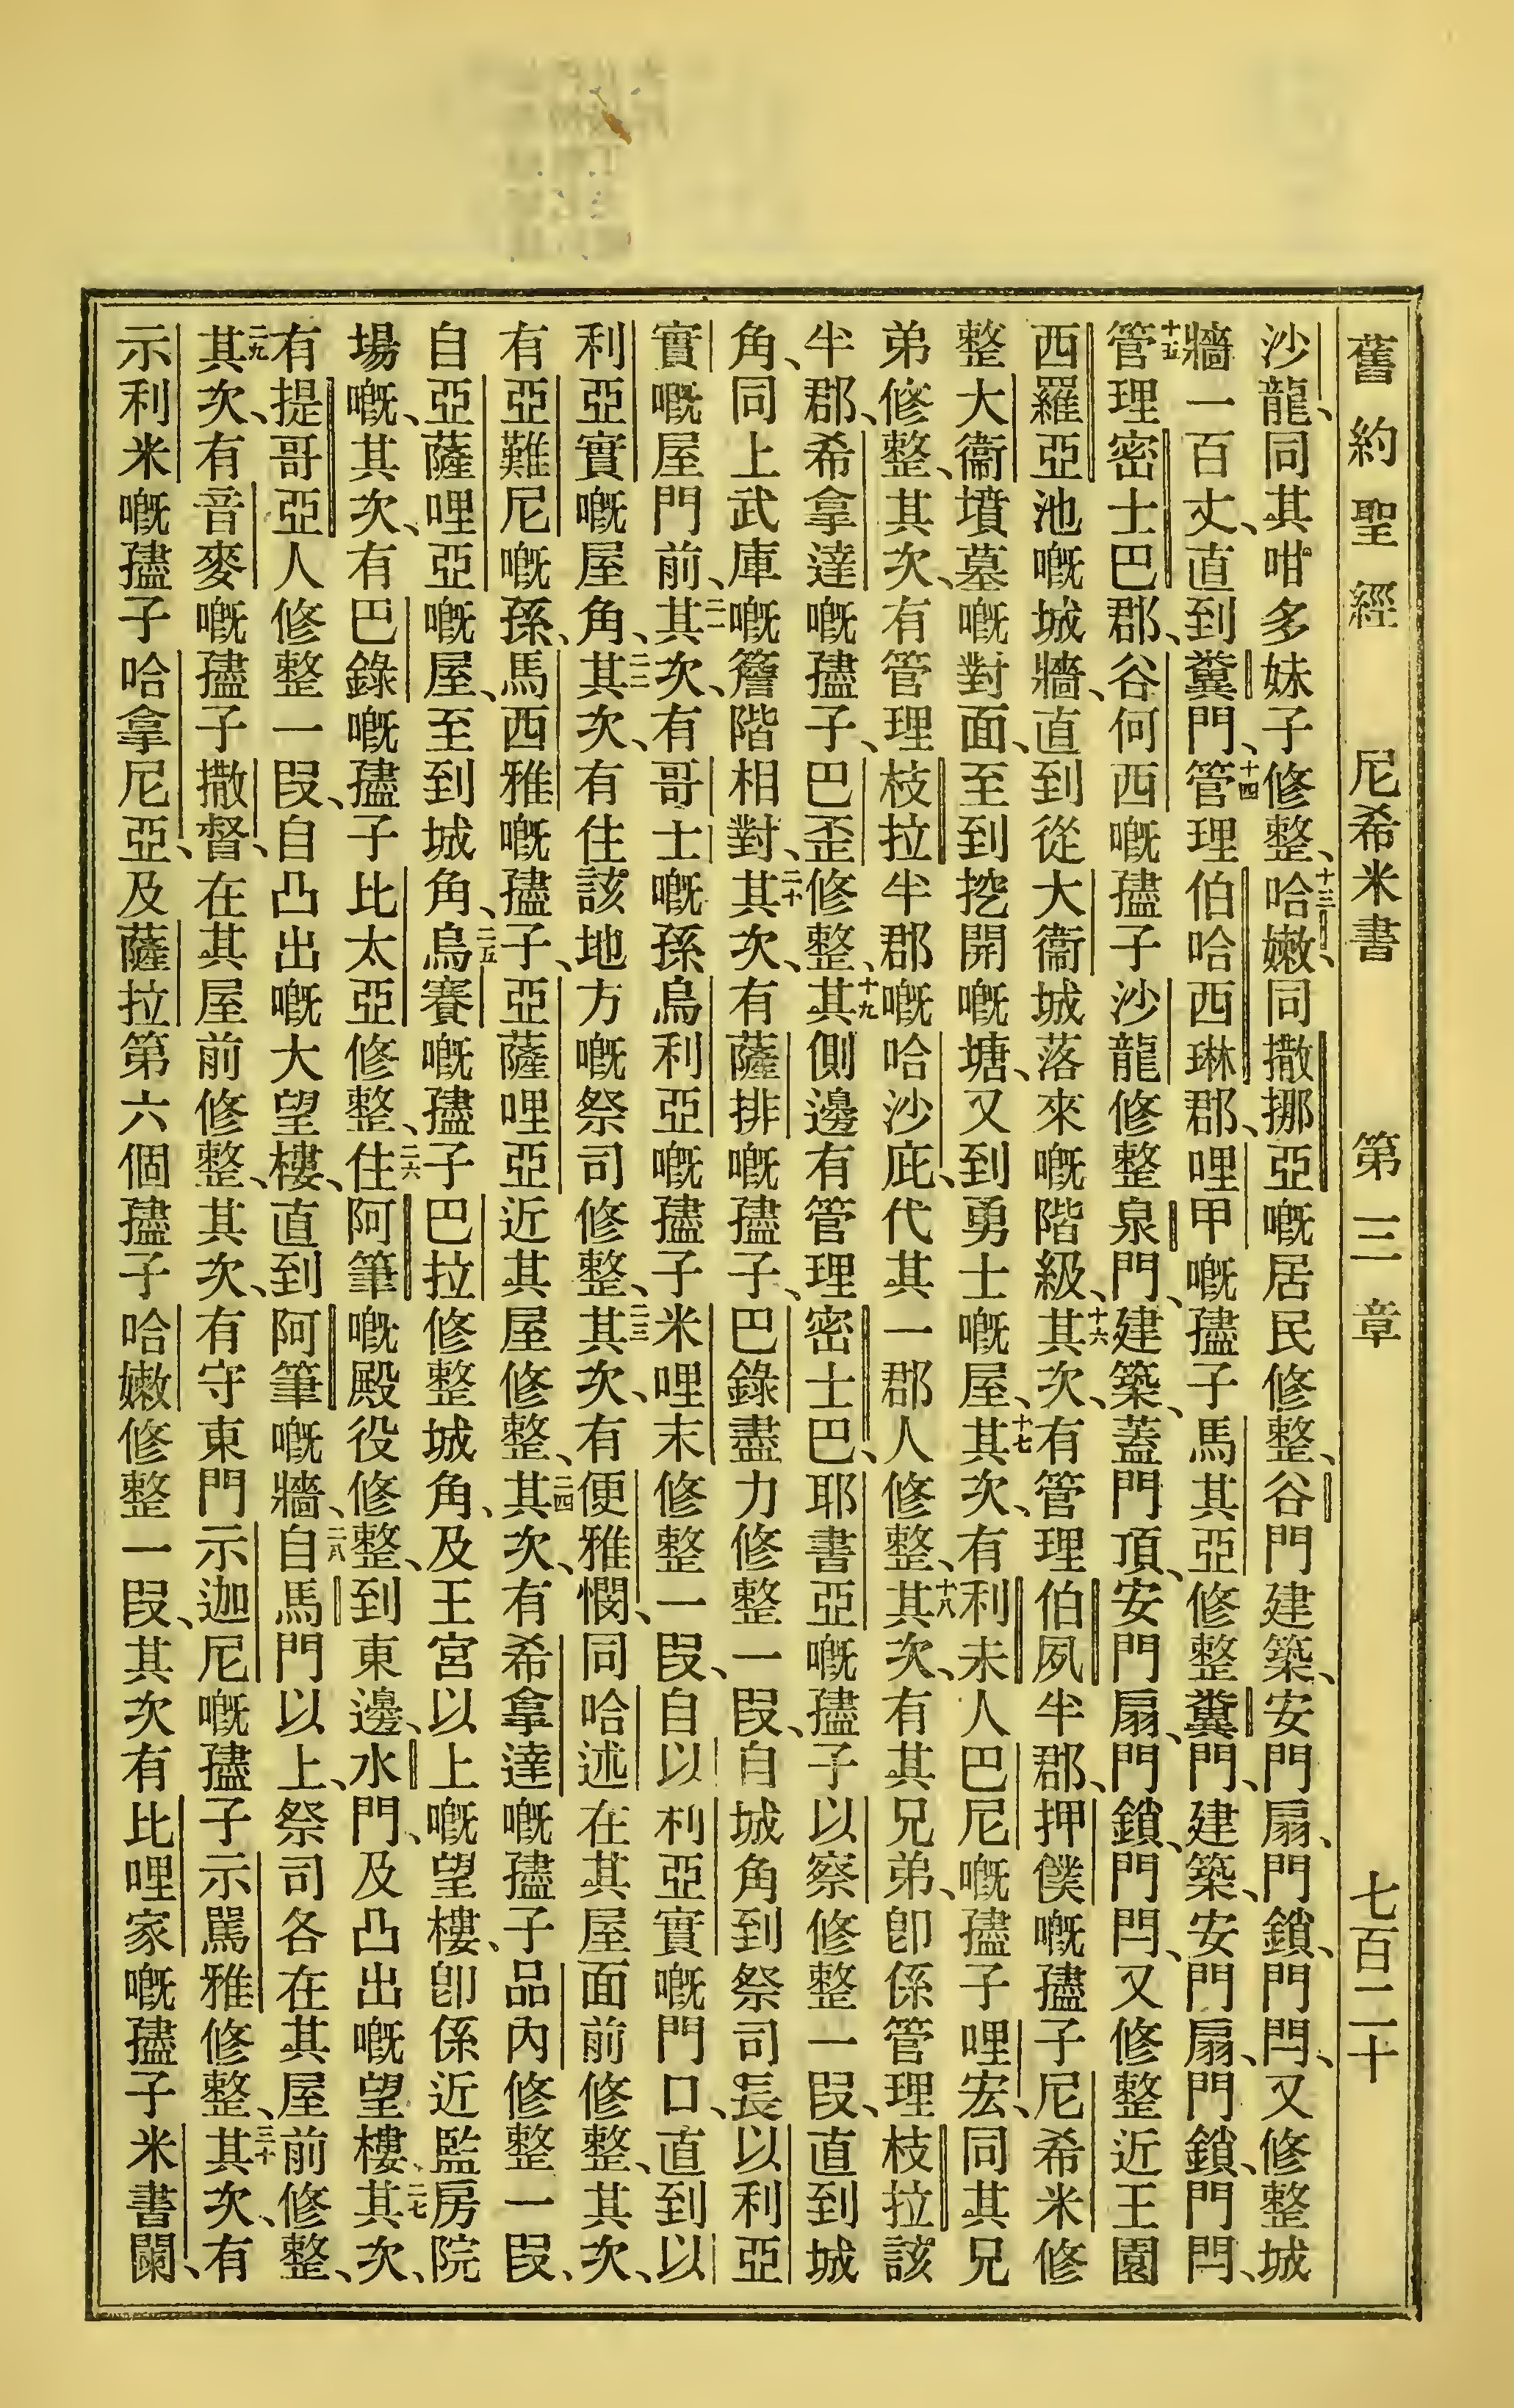 舊約聖經　尼希米書　第三章　七百二十
沙龍、同其咁多妹子修整、十三哈嫩、同撒挪亞嘅居民修整、谷門建築、安門扇、門鎖、門閂、又修整城
牆一百丈、直到糞門、十四管理伯哈西琳郡、哩甲嘅孻子馬其亞修整糞門、建築、安門扇、門鎖、門閂、
十五管理密士巴郡、谷何西嘅孻子沙龍修整泉門、建築、蓋門頂、安門扇、門鎖、門閂、又修整近王園
西羅亞池嘅城牆、直到從大衞城落來嘅階級、十六其次、有管理伯夙半郡、押僕嘅孻子尼希米修
整大衞墳墓嘅對面、至到挖開嘅塘、又到勇士嘅屋、十七其次、有利未人巴尼嘅孻子哩宏、同其兄
弟修整、其次、有管理枝拉半郡嘅哈沙庇、代其一郡人修整、十八其次、有其兄弟、卽係管理枝拉該
半郡、希拿達嘅孻子、巴歪修整、十九其側邊有管理密士巴、耶書亞嘅孻子以察修整一叚、直到城
角、同上武庫嘅簷階相對、二十其次、有薩排嘅孻子、巴錄盡力修整一叚、自城角到祭司長以利亞
實嘅屋門前、二一其次、有哥士嘅孫烏利亞嘅孻子米哩末修整一叚、自以利亞實嘅門口、直到以
利亞實嘅屋角、二二其次、有住該地方嘅祭司修整、二三其次、有便雅憫、同哈述在其屋面前修整、其次、
有亞難尼嘅孫、馬西雅嘅孻子、亞薩哩亞近其屋修整、二四其次、有希拿達嘅孻子品內修整一叚、
自亞薩哩亞嘅屋、至到城角、二五烏賽嘅孻子巴拉修整城角、及王宮以上嘅望樓、卽係近監房院
場嘅、其次、有巴錄嘅孻子比太亞修整、二六住阿筆嘅殿役修整、到東邊、水門、及凸出嘅望樓、二七其次、
有提哥亞人修整一叚、自凸出嘅大望樓、直到阿筆嘅牆、二八自馬門以上、祭司各在其屋前修整、
二九其次、有音麥嘅孻子撒督、在其屋前修整、其次、有守東門示迦尼嘅孻子示駡雅修整、三十其次、有
示利米嘅孻子哈拿尼亞、及薩拉第六個孻子哈嫩修整一叚、其次有比哩家嘅孻子米書闌、